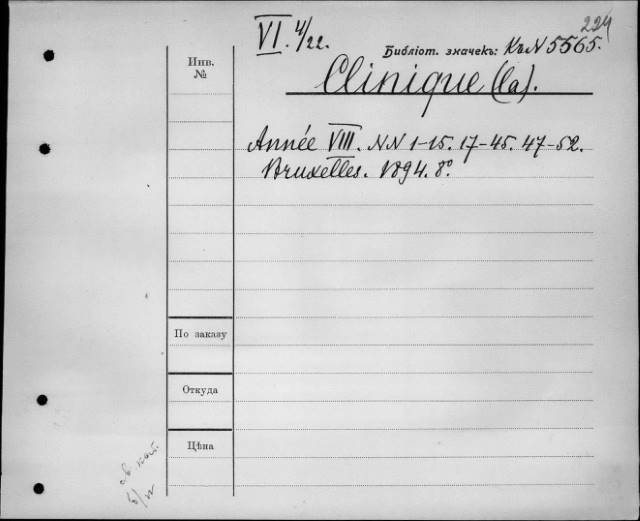 224
VI. 4/22.
Библіот. значекъ: Къ N 5565.
Инв.
№
Clinique (La).
Année VIII. NN 1-15. 17-45. 47-52.
Bruxelles. 1894. 8°.
По заказу
Откуда
Цѣна